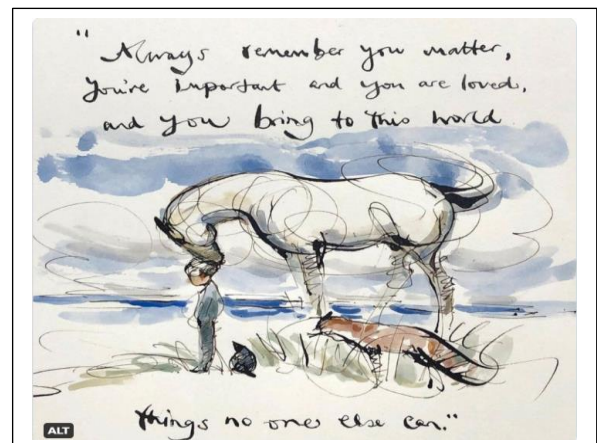 "Always remember you matter,
you're important and you are loved,
and you bring to this world
things no one else can."
ALT